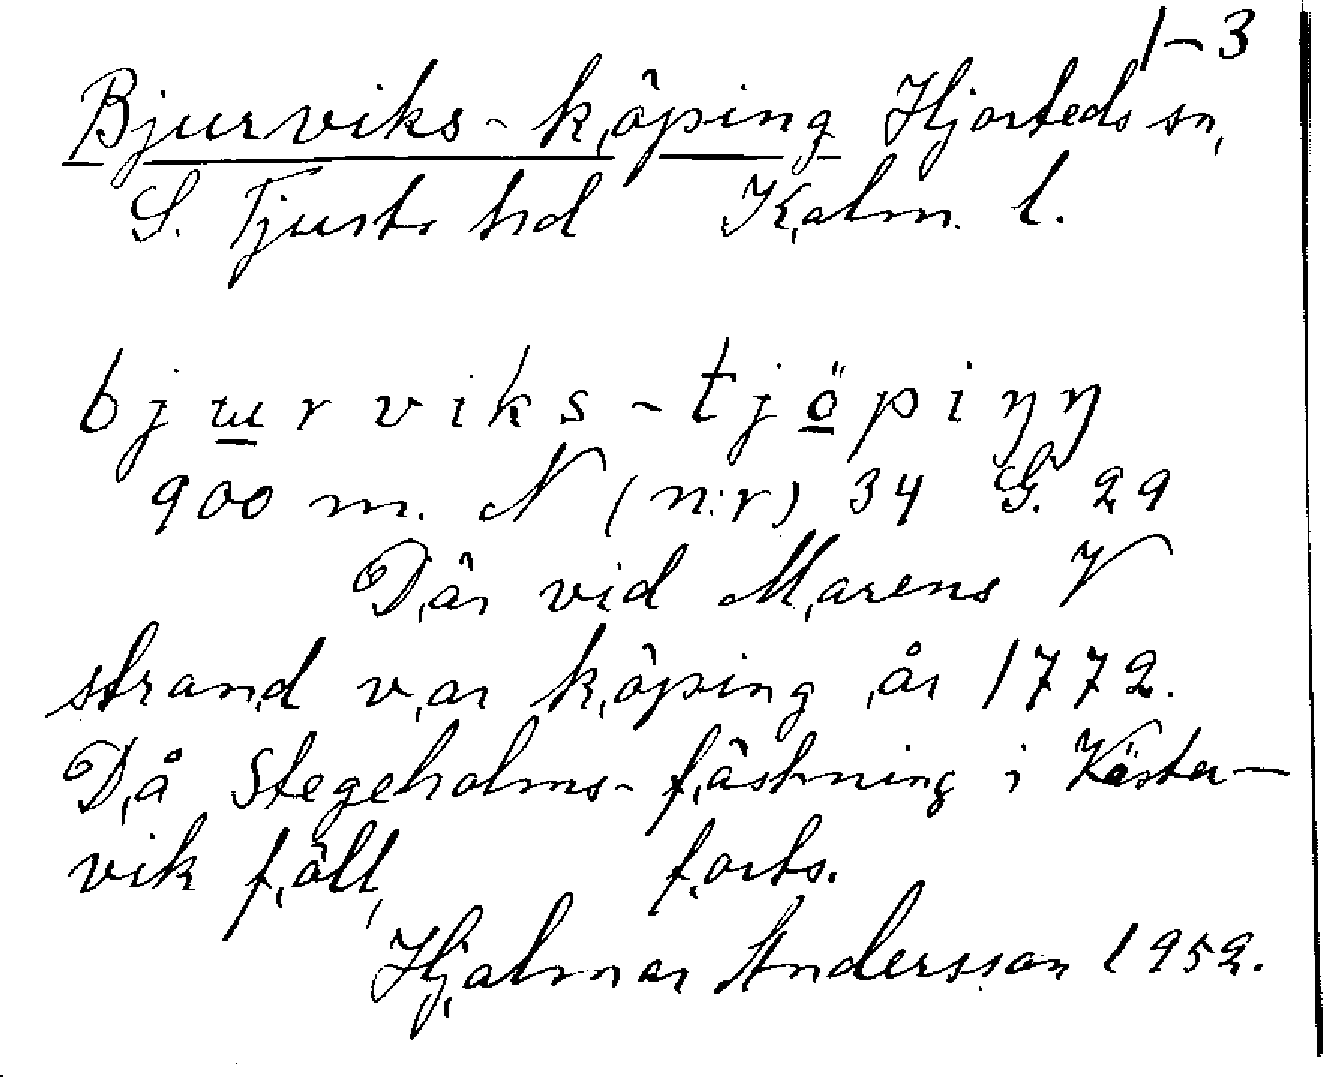 1-3
Bjurviks-köping Hjorteds sn,
S. Tjusts hd Kalm. l.
bjurviks-tjöpiŋŋ
900 m. N (n:r) 34 G. 29
Där vid Marens V
strand var köping år 1772.
Då Stegeholms-fästning i Väster-
vik föll, forts.
Hjalmar Andersson 1952.